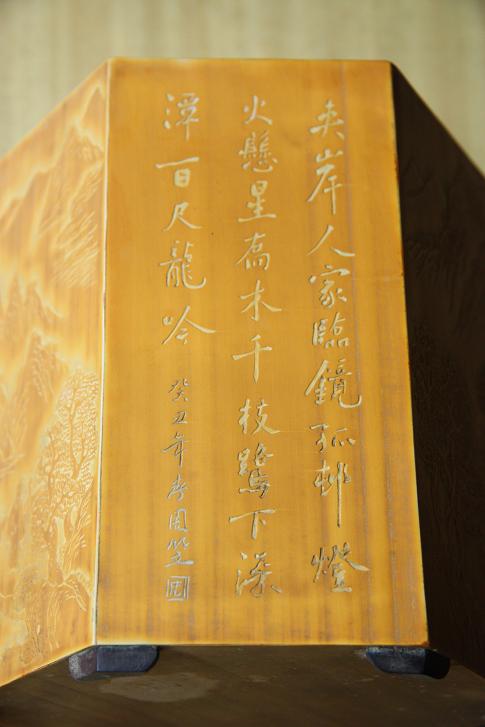 夹岸人家臨鏡孤邨燈
火懸星喬木千枝鷺下深
潭百尺龍吟
癸丑年孝周笠